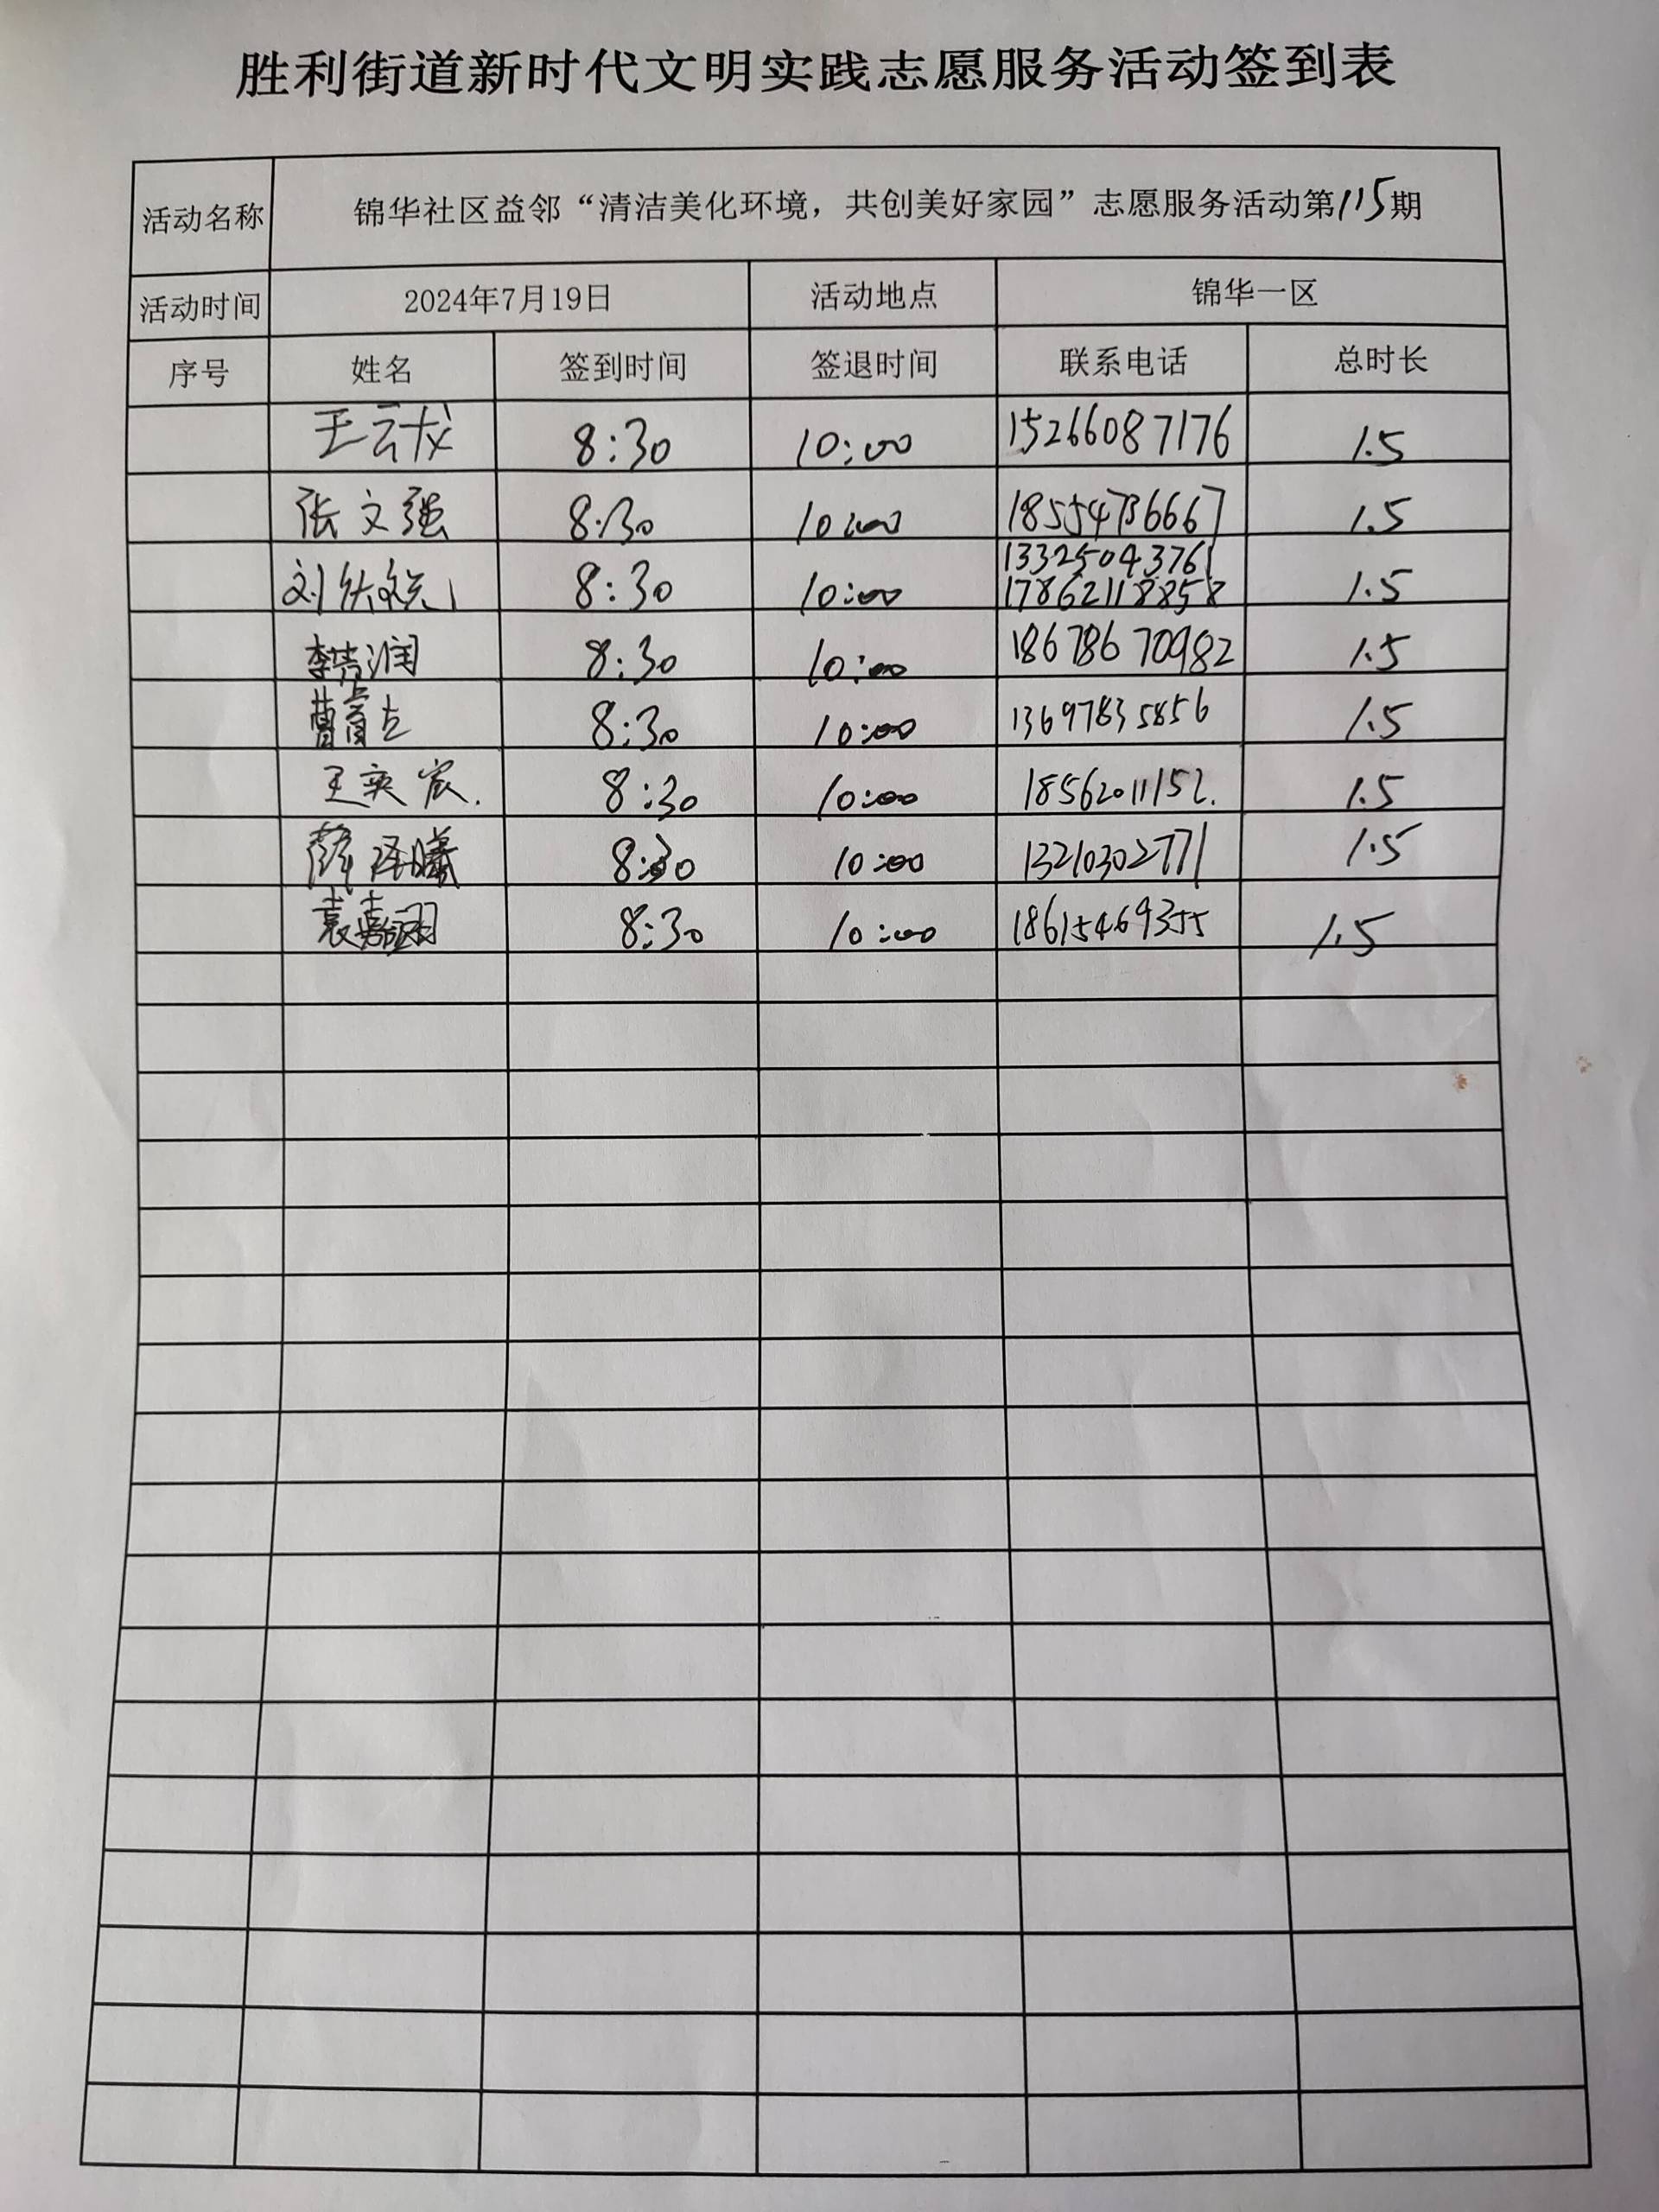 胜利街道新时代文明实践志愿服务活动签到表
活动名称 锦华社区益邻“清洁美化环境，共创美好家园”志愿服务活动第115期
活动时间 2024年7月19日 活动地点 锦华一区
序号 姓名 签到时间 签退时间 联系电话 总时长
王云龙 8:30 10:00 15266087176 1.5
张文强 8:30 10:00 18554736667 1.5
13325043761
刘 8:30 10:00 17862118858 1.5
李 润 8:30 10:00 18678670982 1.5
曹 8:30 10:00 13697835856 1.5
王奕宸. 8:30 10:00 18562011152. 1.5
薛泽曦 8:30 10:00 13210302771 1.5
袁嘉翊 8:30 10:00 18615469355 1.5